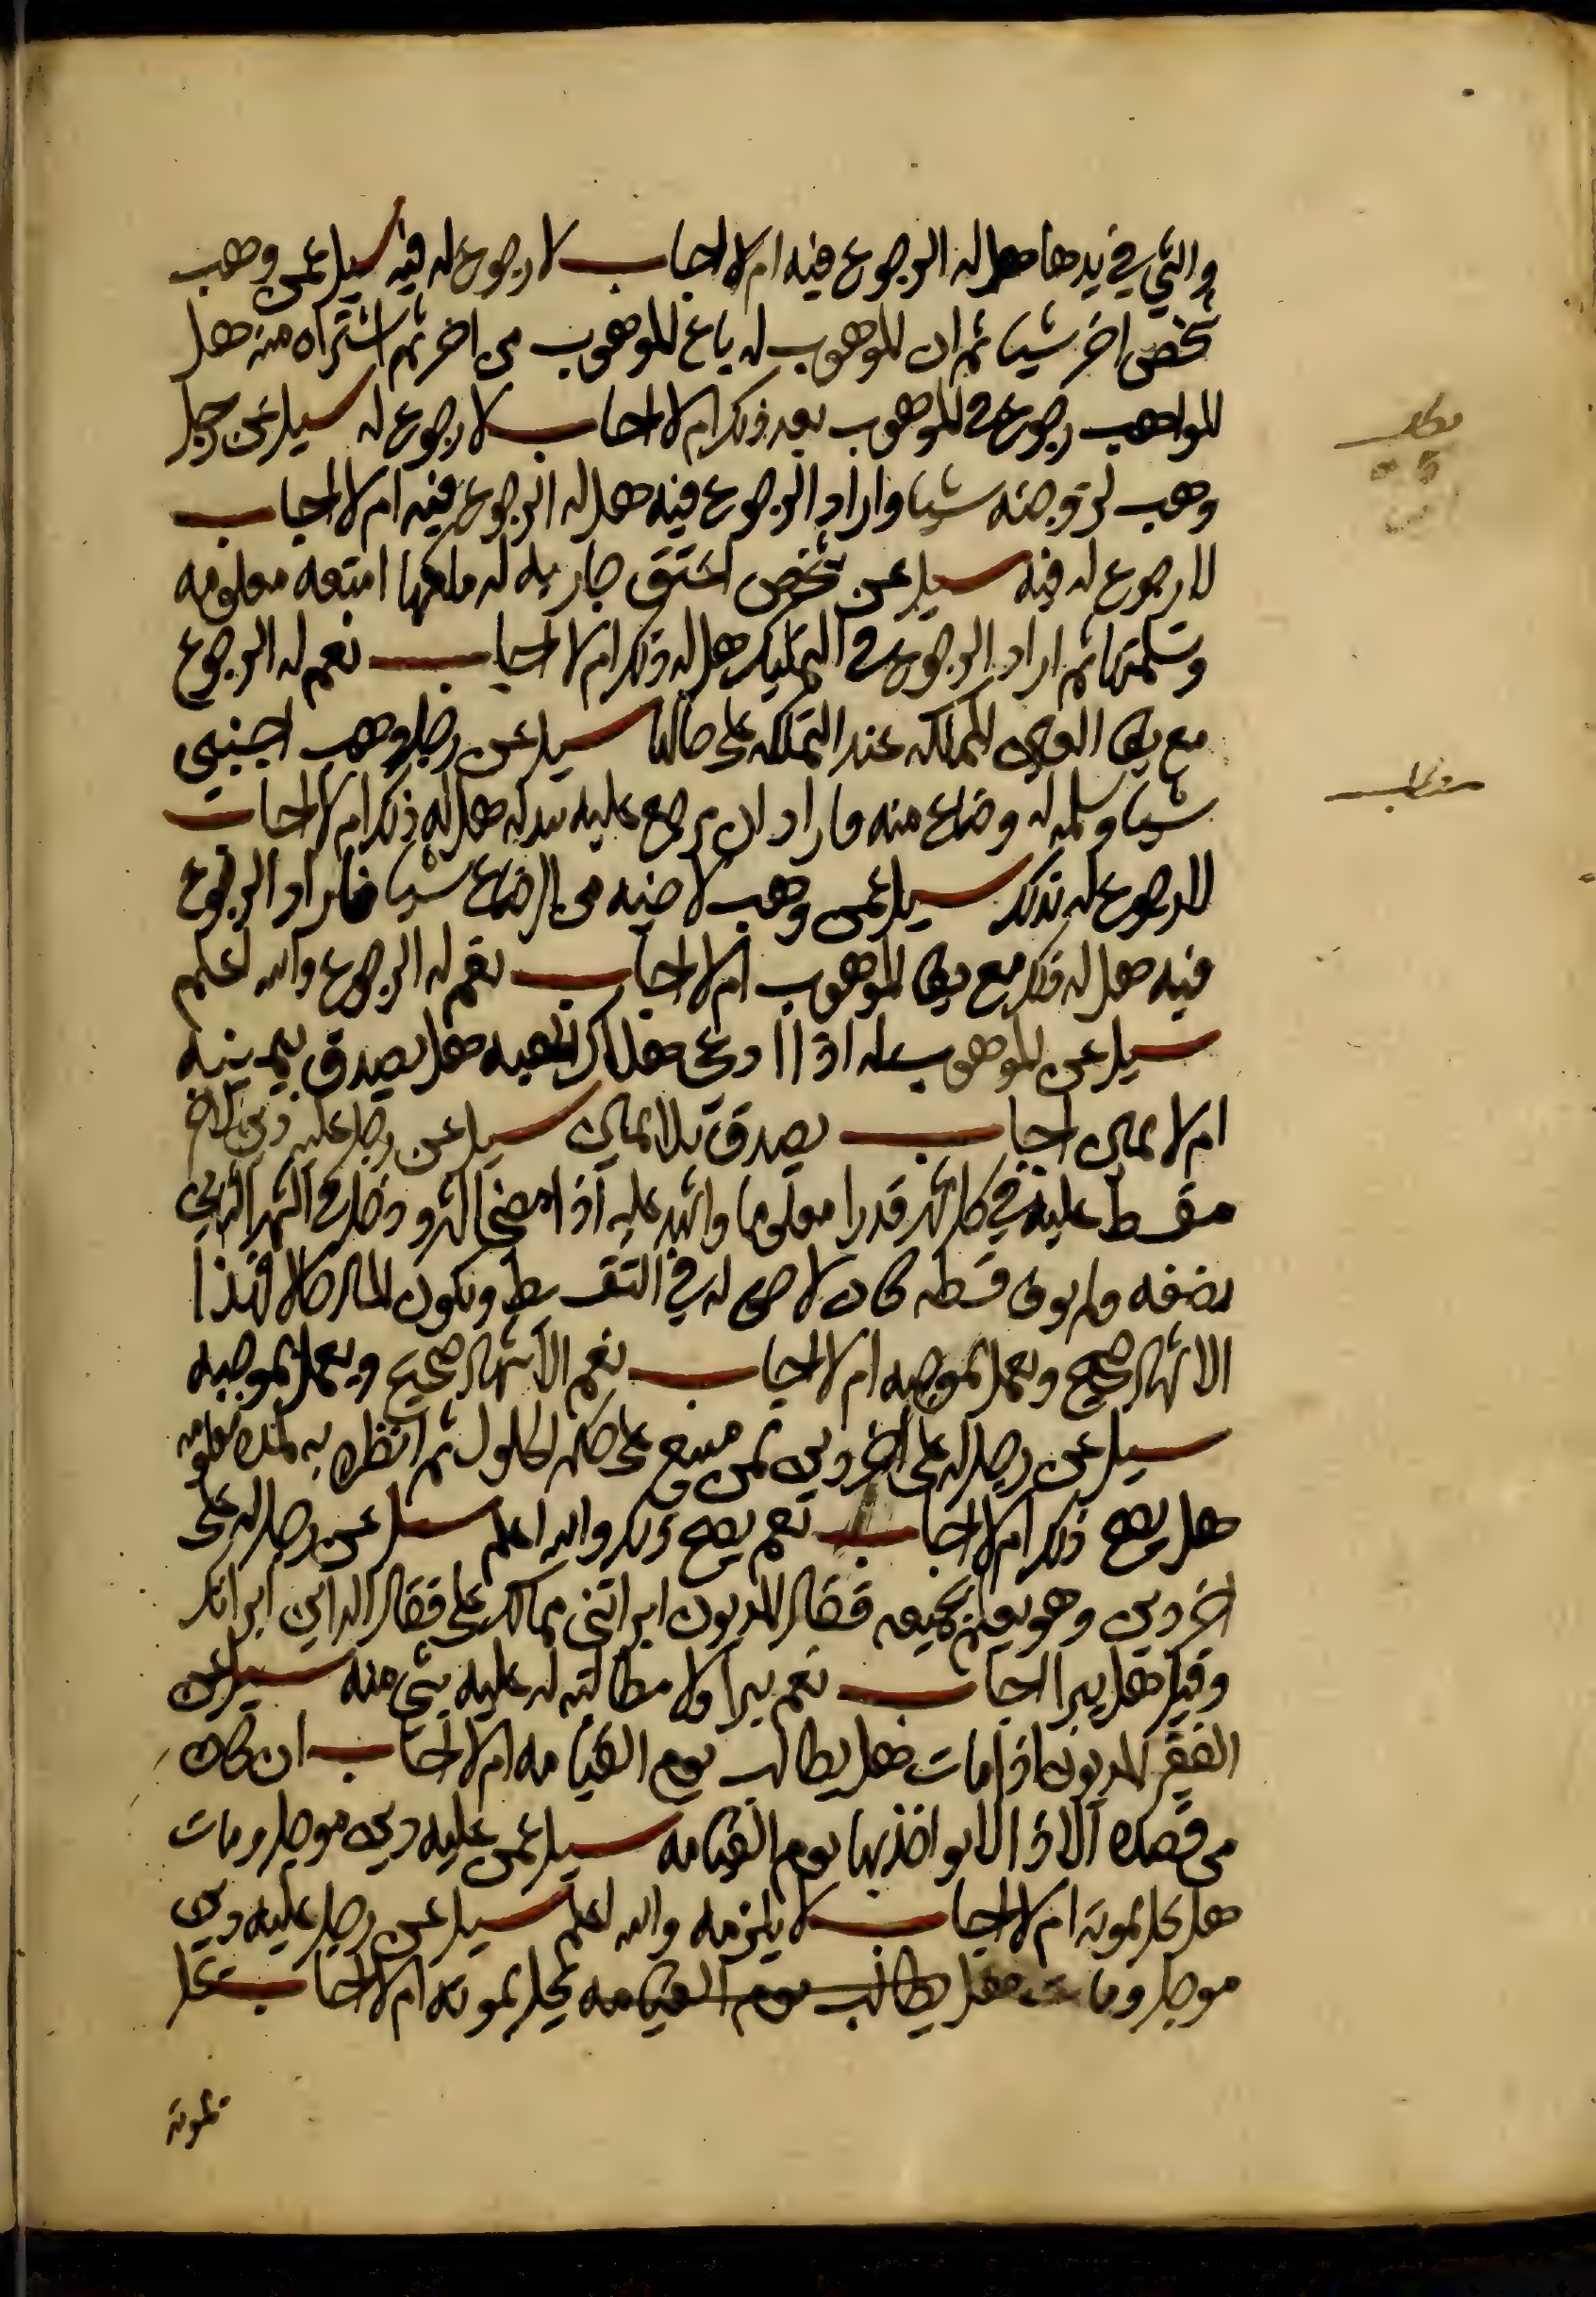 والشي في يدها هل له الرجوع فيه ام لا اجاب لا رجوع له فيه سيل عمن وهب
شخص اخر شيا ثم ان الموهوب له باع الموهوب من اخر ثم اشتراه منه هل
للواهب رجوع في الموهوب بعد ذلك ام لا اجاب لا رجوع له سيل عن رجل
وهب لزوجته شيا واراد الرجوع فيه هل له الرجوع فيه ام لا اجاب
لا رجوع له فيه سيل عن شخص اعتق جاريه له ملكها امتعه معلومه
وتسلمتها ثم اراد الرجوع في التمليك هل له ذلك ام لا اجاب نعم له الرجوع
مع بقا العين المملكه عند التملكه على حالها سيل عن رجل وهب اجنبي
شيا وسلمه له وضاع منه فاراد ان يرجع عليه ببدله هل له ذلك ام لا اجاب
لا رجوع له بذلك سيل عمن وهب لاخيه من الرضاع شيا فاراد الرجوع
فيه هل له ذلك مع بقا الموهوب ام لا اجاب نعم له الرجوع والله اعلم
سيل عن الموهوب له اذا ادعى هلاك الهبه هل يصدق بيمينه
ام لا يمين اجاب يصدق بلا يمين سيل عن رجل عليه دين لاخر
مقسط عليه في كل شهر قدرا معلوما واشهد عليه اذا مضى الشهر ودخل في الشهر الثاني
نصفه ولم يوف قسطه كان لا حق له في التقسيط ويكون المال حالا فهذا
الاشهاد صحيح ويعمل بموجبه ام لا اجاب نعم الاشهاد صحيح ويعمل بموجبه
سيل عن رجل له على اخر دين ثمن مبيع على حكم الحلول ثم انظره به لمده معلومه
هل يصح ذلك ام لا اجاب نعم يصح ذلك والله اعلم سيل عن رجل له على
اخر دين وهو يعلم بجميعه فقال المديون ابراتني مما لك علي فقال الداين ابراتك
وقبل هل يبرا اجاب نعم يبرا ولا مطالبه له عليه بشي منه سيل عن
الفقير المديون اذا مات هل يطالب يوم القيامه ام لا اجاب ان كان
من قصده الاداء لا يواخذ بها يوم القيامه سيل عمن عليه دين موجل ومات
هل يحل بموته ام لا اجاب لا يلزمه والله اعلم سيل عن رجل عليه دين
موجل ومات هل يطالب يوم القيامه يحل بموته ام لا اجاب يحل
بموته
مطلب